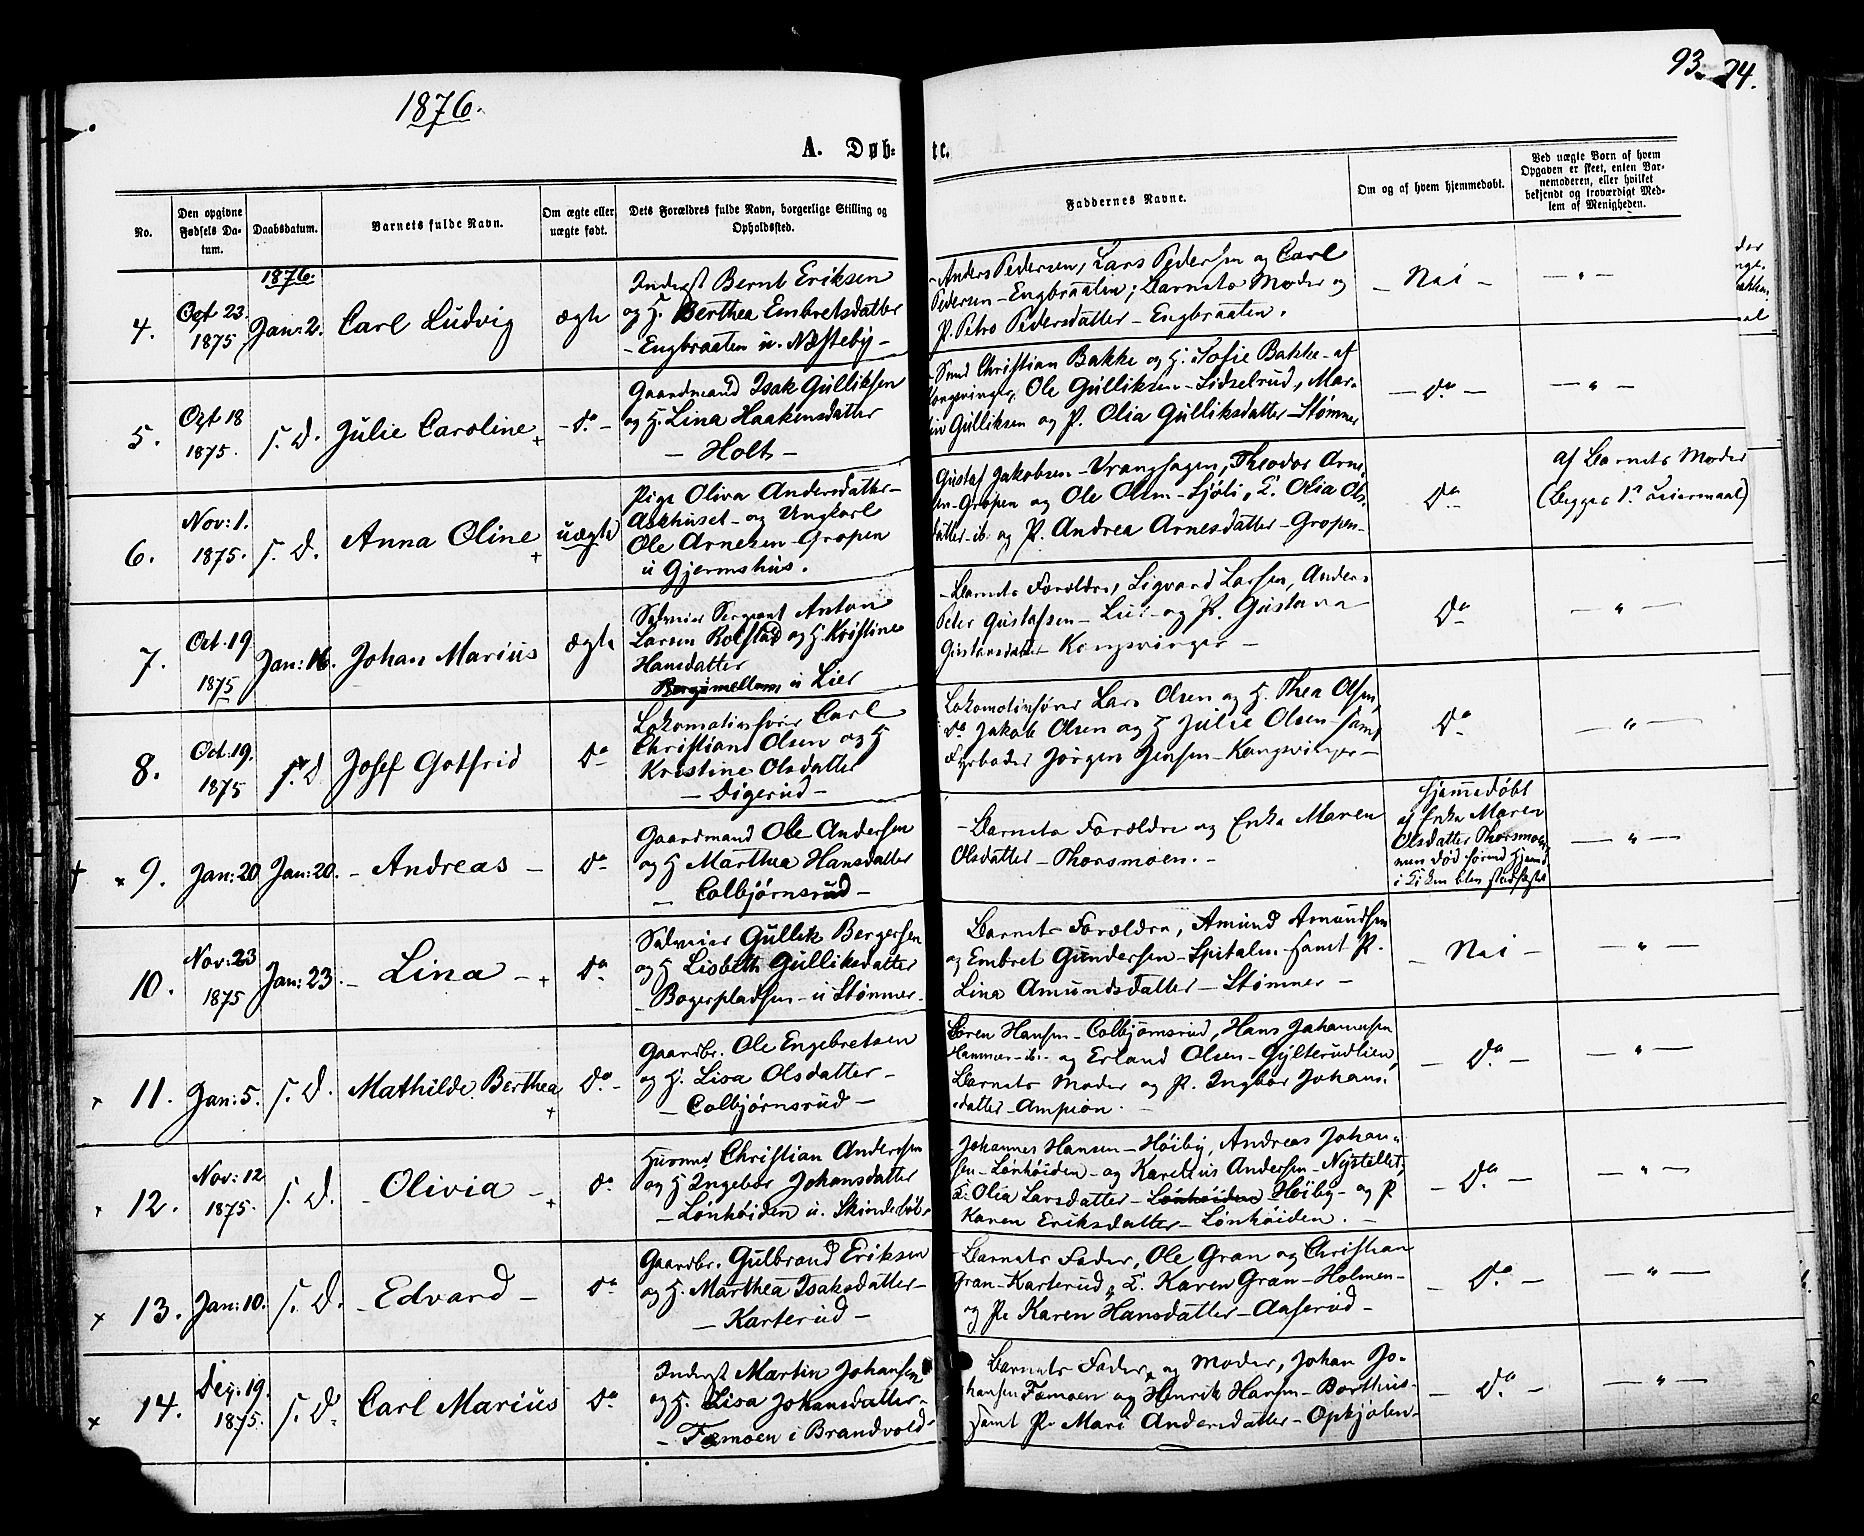 1876.
93.
94.
A. Døb-
te.
No.
Den opgivne Fødsels Da-tum.
Daabsdatum.
Barnets fulde Navn.
Om ægte eller uægte født.
Dets Forældres fulde Navn, borgerlige Stilling og Opholdssted.
Faddernes Navne.
Om og af hvem hjemmedøbt.
Ved uægte Børn af hvem Opgaven er skeet, enten Bar-nemoderen, eller hvilket bekjendt og troværdigt Med-lem af Menigheden.
1876.
4.
Oct 23.
1875
Jan: 2.
Carl Ludvig
ægte
Inderst Bernt Eriksen
og H. Berthea Embretsdatter
- Engbraaten u. Næsteby -
- Anders Pedersen, Lars Pedersen og Carl
Pedersen - Engbraaten; Barnets Moder og
P. Petro Pedersdatter - Engbraaten.
- Nei -
- " -
5.
Oct 18
1875.
s. D.
Julie Caroline
- Do. -
Gaardmand Isak Gulliksen
og H. Lina Haakensdatter
- Holt -
- Smed Christian Bakke og H. Sofie Bakke - af
Kongsvinger, Ole Gulliksen - Lidselrud, Mar-
tin Gulliksen og P. Olia Gulliksdatter - Stømner
- Do -
- " -
6.
Nov: 1.
1875.
s. D.
Anna Oline
uægte
Pige Oliva Andersdatter -
Aakhuset - og Ungkarl
Ole Arnesen - Gropen
u Gjermshus.
Gustaf Jakobsen - Vranghagen, Theodor Arne-
sen - Gropen og Ole Olsen - Sjøli, E. Olia Ols-
datter - ib. og P. Andrea Arnesdatter - Gropen -
Do
af Barnets Moder
(begges 1ste Leiermaal)
7.
Oct. 19
1875
Jan: 16.
Johan Marius
ægte
Selveier Sergeant Anton
Larsen Rolstad og H. Kristine
Hansdatter
u Lier
- Barnets Forældre, Sigvard Larsen, Anders
Peter Gustafsen - Lier - og P. Gustava
Gustavsdatter Kongsvinger -
Do
- " -
8.
Oct. 19.
1875
s. D
Josef Gotfrid
Do
Lokomotivfører Carl
Christian Olsen og H
Kristine Olsdatter
- Digerud -
Lokomotivfører Lars Olsen og H. Thea Olsen,
Do Jakob Olsen og H Julie Olsen samt
Fyrbøder Jørgen Jensen - Kongsvinger -
Do
- " -
† × 9.
Jan: 20
Jan: 20.
- Andreas -
Do
Gaardmand Ole Andersen
og H Marthea Hansdatter
- Colbjørnsrud -
- Barnets Forældre og Enke Maren
Olsdatter - Thorsmoen. -
hjemmedøbt
af Enke Maren
Olsdatter Thorsmoen
men død førend Hjemd.
i Kirken blev stadfæstet
- " -
10.
Nov: 23
1875
Jan: 23.
- Lina -
Do
Selveier Gullik Bergersen
og H Lisbeth Gulliksdatter
Bogerpladsen - u Stømner.
Barnets Forældre, Amund Amundsen
og Embret Gundersen - Spitalen samt P.
Lina Amundsdatter - Stømner -
- Nei -
- " -
× 11.
Jan: 5.
s. D.
Mathilde Berthea
Do
Gaardbr. Ole Engebretsen
og H. Lisa Olsdatter -
- Colbjørnsrud -
Søren Hansen - Colbjørnsrud, Hans Johannesen
Hammer - ib. - og Erland Olsen - Gylterudlien,
Barnets Moder og P. Ingbor Johans-
datter - Ampion. -
- Do -
- " -
12.
Nov: 12
1875.
s. D.
- Olivia -
Do
Husmd Christian Andersen
og H Ingebor Johansdatter
- Lønhøiden u. Skinderbøl -
Johannes Hansen - Høiby, Andreas Johan-
sen - Lønhøiden - og Karelius Andersen - Nystellet,
E. Olia Larsdatter - Lønhøiden Høiby - og P
Karen Eriksdatter - Lønhøiden. -
- Do -
- " -
× 13.
Jan: 10.
s. D.
- Edvard -
Do
Gaardbr. Gulbrand Eriksen
og H. Marthea Isaksdatter -
- Karterud -
- Barnets Fader, Ole Gran og Christian
Gran - Karterud, E. Karen Gran - Holmen -
og P. Karen Hansdatter - Aaserud -
- Do -
- " -
× 14.
Dez: 19.
1875.
s. D.
Carl Marius
Do
Inderst Martin Johansen
og H. Lisa Johansdatter -
- Fæmoen i Brandvold -
Barnets Fader og Moder, Johan Jo-
hansen Fæmoen og Henrik Hansen - Borthus -
samt P. Mari Andersdatter - Opkjølen -
- Do -
- " -